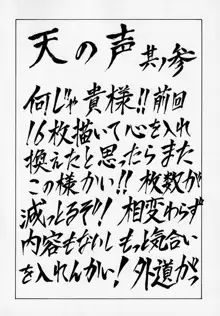 天の声 其ノ参
何じゃ貴様!!前回
16枚描いて心を入れ
換えたと思ったらまた
この様かい!!枚数が
減っとるぞ!!相変わらず
内容もないしもっと気合い
を入れんかい!外道がっ